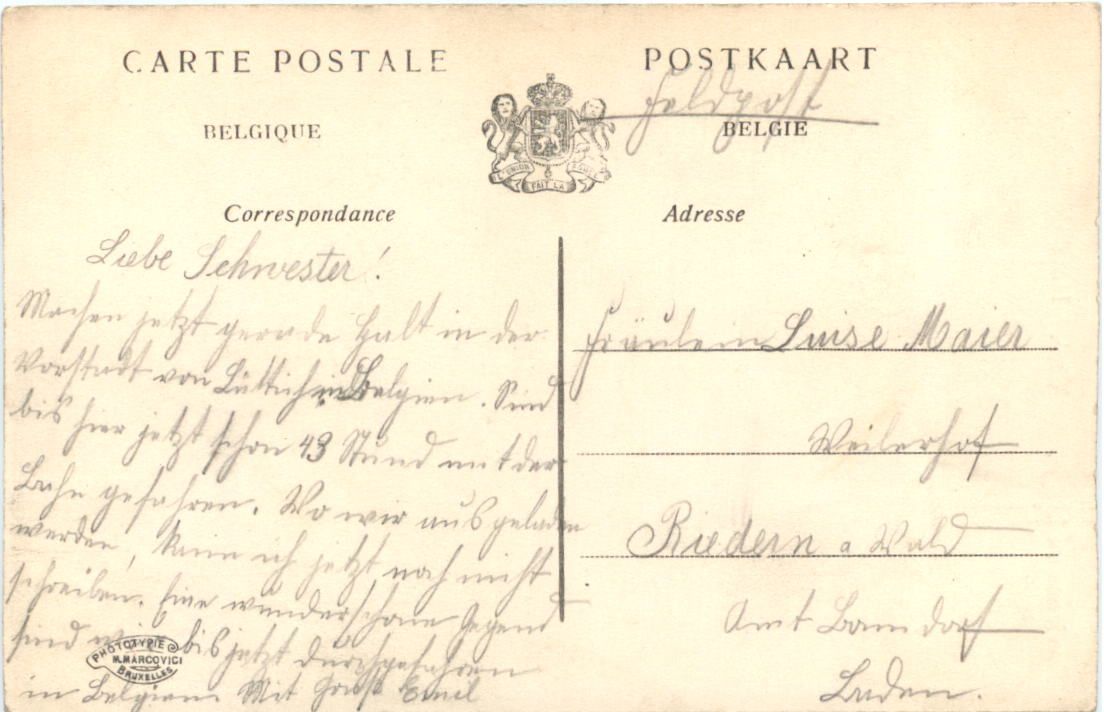 CARTE POSTALE
BELGIQUE
POSTKAART
Feldpost
BELGIE
L'UNION FAIT LA FORCE
Correspondance
Liebe Schwester!
Machen jetzt gerade Halt in der
Vorstadt von Lüttich in Belgien. Sind
bis hier jetzt schon 43 Stund mit der
Bahn gefahren. Wo wir ausgeladen
werden, kann ich jetzt noch nicht
schreiben. Eine wunderschöne Gegend
sind wir bis jetzt durchgefahren
in Belgien. Mit Gruß Emil
PHOTOTYPIE
M. MARCOVICI
BRUXELLES
Adresse
Fräulein Luise Maier
Weilerhof
Riedern a Wald
Amt Bonndorf
Baden.